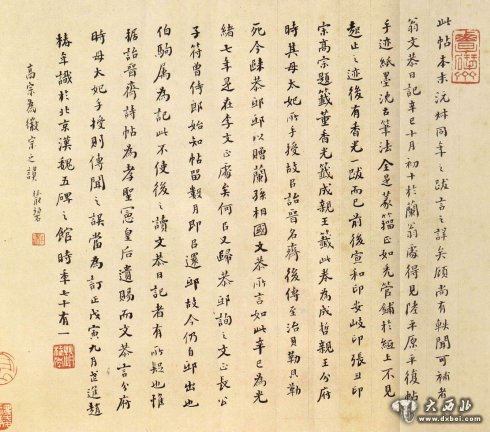 此帖本末沅叔同年之跋言之詳矣顧尚有軼聞可補者
翁文恭日記辛巳十月初十於蘭翁處得見陸平原平復帖
手迹紙墨沈古筆法全是篆籀正如禿管鋪於紙上不見
起止之迹後有香光一跋而已前後宣和印安岐印張丑印
宗高宗題籤董香光籤成親王籤此卷為成哲親王分府
時其母太妃所手授故以詒晉名齋後傳至治貝勒貝勒
死今歸恭邸邸以贈蘭孫相國文恭所言如此辛巳為光
緒七年是在李文正處矣何以又歸恭邸詢之文正長公
子符曾侍郎始知帖留數月即以還邸故今仍自邸出也
伯駒属為記此不使後之讀文恭日記者有所疑也惟
據詒晉齋詩帖為孝聖憲皇后遺賜而文恭言分府
時母太妃手授則傳聞之誤當為訂正戊寅九月芷漁趙
椿年識於北京漢魏五碑之館時年七十有一
高宗為徽宗之誤
大西北
www.dxbei.com